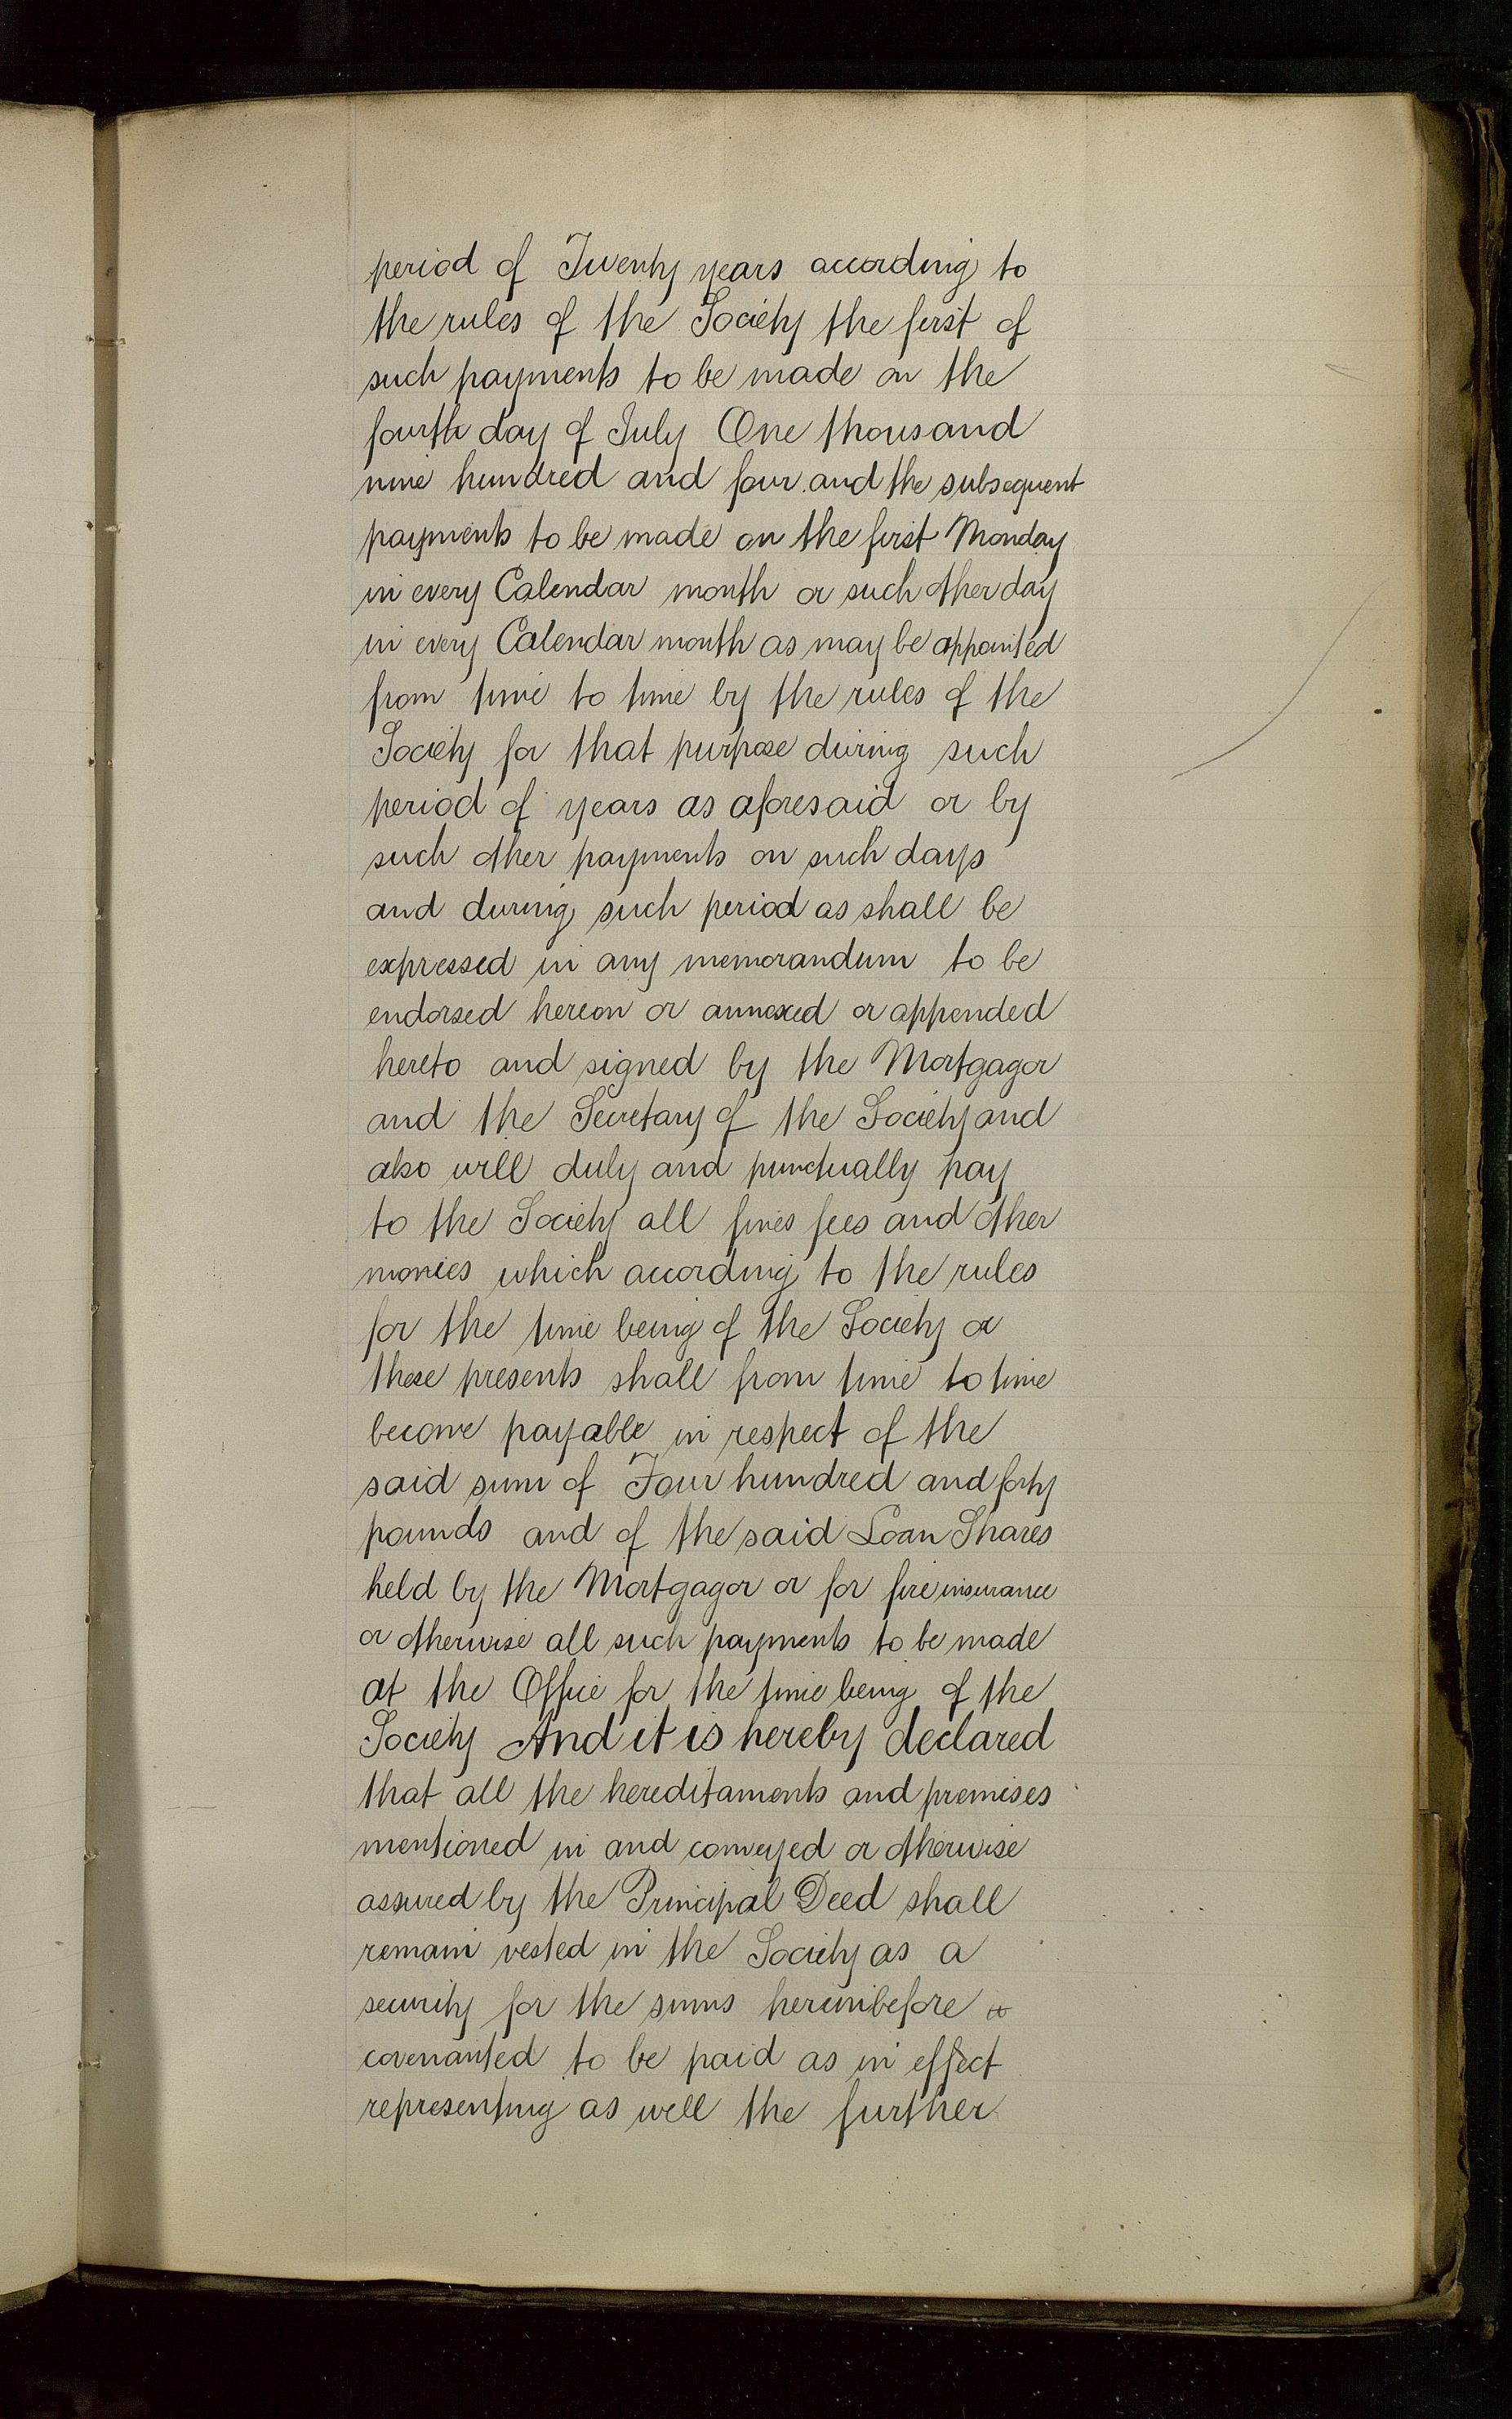 period of Twenty years according to
the rules of the Society the first of
such payments to be made on the
fourth day of July One thousand
nine hundred and four and the subsequent
payments to be made on the first Monday
in every Calendar month or such other day
in every Calendar month as may be appointed
from time to time by the rules of the
Society for that purpose during such
period of years as aforesaid or by
such other payments on such days
and during such period as shall be
expressed in any memorandum to be
endorsed hereon or annexed or appended
hereto and signed by the Mortgagor
and the Secretary of the Society and
also will duly and punctually pay
to the Society all fines fees and other
monies which according to the rules
for the time being of the Society or
these presents shall from time to time
become payable in respect of the
said sum of Four hundred and forty
pounds and of the said Loan Shares
held by the Mortgagor or for fire insurance
or otherwise all such payments to be made
at the Office for the time being of the
Society And it is hereby declared
that all the hereditaments and premises
mentioned in and conveyed or otherwise
assured by the Principal Deed shall
remain vested in the Society as a
security for the sums hereinbefore
covenanted to be paid as in effect
representing as well the further